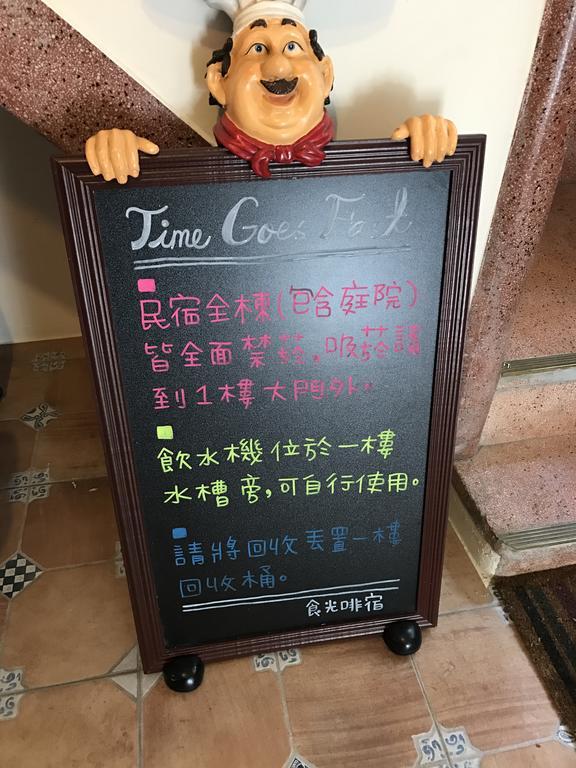 Time Goes Fast
民宿全棟(包含庭院)
皆全面禁菸,吸菸請
到1樓大門外。
飲水機位於一樓
水槽旁,可自行使用。
請將回收丟置一樓
回收桶。
食光啡宿